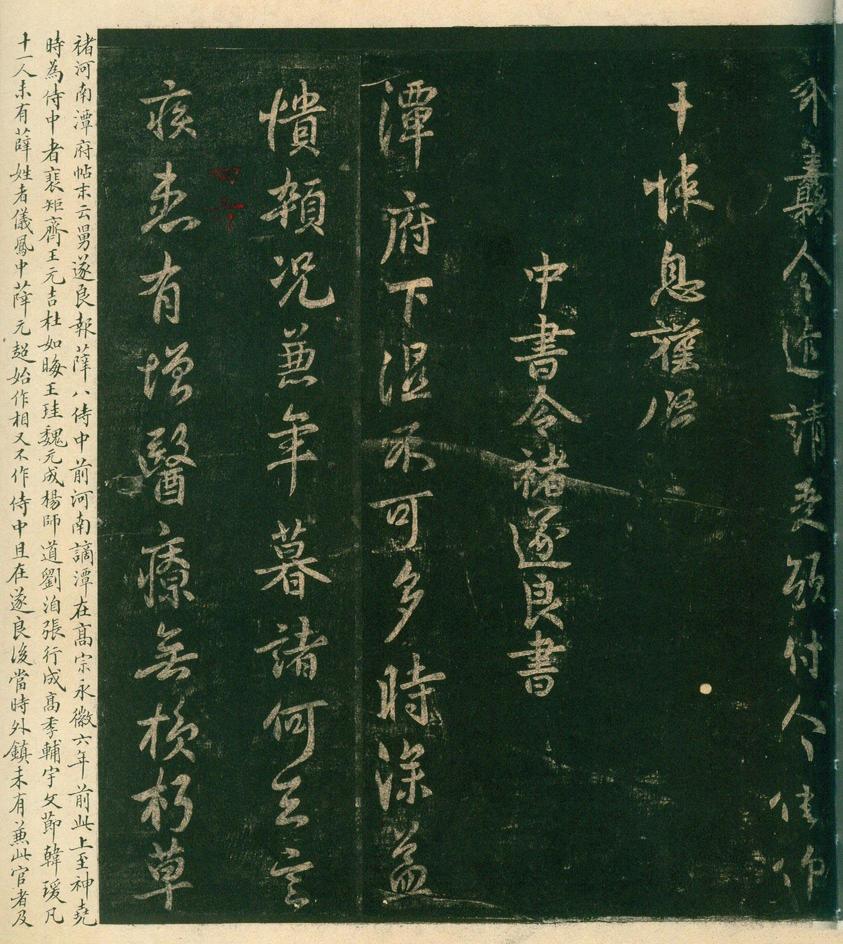 今迨請更須付
干悚息藿侶
中書令褚遂良書
潭府下湿不可多時深益
憒頓况兼年暮諸何足言
疾患有增醫療無損朽草
褚河南潭府帖末云舅遂良報薛八侍中前河南謫潭在高宗永徽六年前此上至神堯
時為侍中者裴矩齊王元吉杜如晦王珪魏元成楊師道劉洎張行成高季輔宇文節韓瑗凡
十一人未有薛姓者儀鳳中薛元超始作相又不作侍中且在遂良後當時外鎮未有兼此官者及